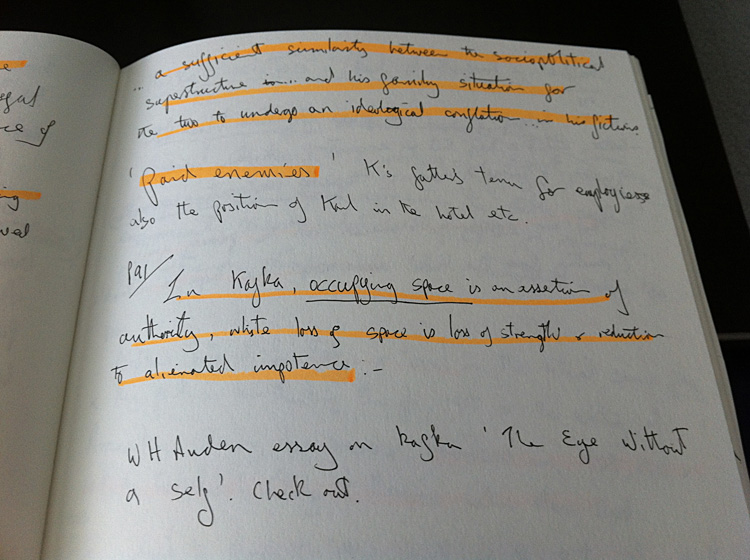 e
egal
ce of
ng
ved
... a sufficient similarity between the sociopolitical
superstructure in ... and his family situation for
the two to undergo an ideological conflation ... in his fictions.
'paid enemies' K's father's term for employees
also the position of Karl in the hotel etc.
In Kafka, occupying space is an assertion of
authority, while loss of space is loss of strength & reduction
to alienated impotence :-
WH Auden essay on Kafka 'The Eye Without
a Self'. Check out.